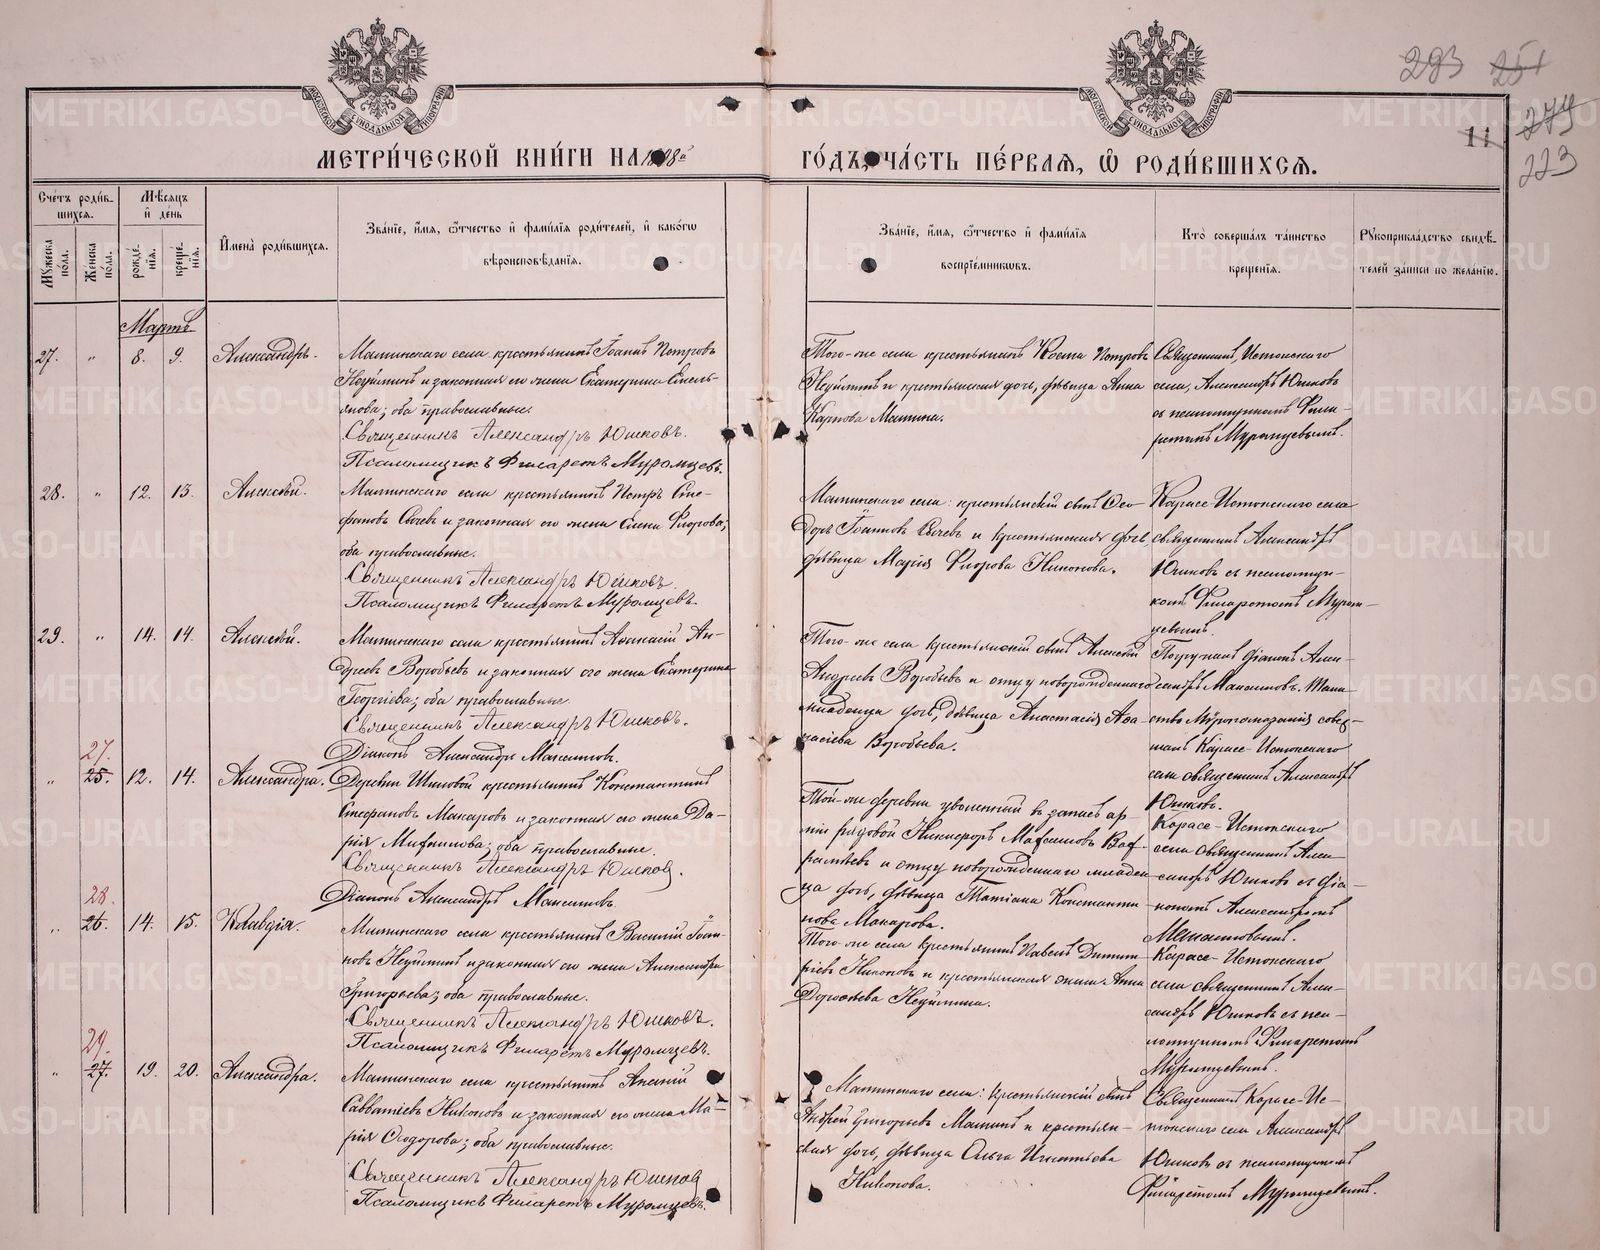 293 251
11 279
223
МЕТРИ́ЧЕСКОЙ КНИ́ГИ НА 1898й ГО́ДЪ, ЧА́СТЬ ПЕ́РВАЯ, Ѽ РОДИ́ВШИХСЯ.
Сче́тъ роди́вшихся.
Мꙋ́жеска по́ла.
Же́нска по́ла.
Мѣ́сяцъ и҆ де́нь
рожде́нїя.
креще́нїя.
И҆мена̀ роди́вшихся.
Зва́нїе, и҆́мя, ѻ҆́тчество и҆ фами́лїя роди́телей, и҆ како́гѡ
вѣроисповѣ́данїя.
Зва́нїе, и҆́мя, ѻ҆́тчество и҆ фами́лїя
воспрїе́мникѡвъ.
Кто̀ соверша́лъ та́инство
креще́нїя.
Рꙋкоприкла́дство свидѣ́-
телей за́писи по жела́нїю.
Мартъ
27. " 8. 9. Александръ.
Маминскаго села крестьянинъ Іоаннъ Петровъ
Неуйминъ и законная его жена Екатерина Емель-
янова; оба православные.
Священникъ Александръ Юшковъ.
Псаломщикъ Филаретъ Муромцевъ.
Того-же села крестьянинъ Косма Петровъ
Неуйминъ и крестьянская дочь, дѣвица Анна
Карпова Мамина.
Священникъ Истокскаго
села, Александръ Юшковъ
съ псаломщикомъ Фила-
ретомъ Муромцевымъ.
28. " 12. 13. Алексѣй.
Маминскаго села крестьянинъ Петръ Сте-
фановъ Сычевъ и законная его жена Елена Флорова;
оба православные.
Священникъ Александръ Юшковъ.
Псаломщикъ Филаретъ Муромцевъ.
Маминскаго села: крестьянскій сынъ Ѳео-
доръ Іоанновъ Сычевъ и крестьянская дочь,
дѣвица Марія Флорова Никонова.
Карасе-Истокскаго села
священникъ Александръ
Юшковъ съ псаломщи-
комъ Филаретомъ Муром-
цевымъ.
29. " 14. 14. Алексѣй.
Маминскаго села крестьянинъ Аѳанасій Ан-
дреевъ Воробьевъ и законная его жена Екатерина
Георгіева; оба православные
Священникъ Александръ Юшковъ.
Діаконъ Александръ Максимовъ.
Того-же села крестьянскій сынъ Алексѣй
Андреевъ Воробьевъ и отцу новорожденнаго
младенца дочь, дѣвица Анастасія Аѳа-
насіева Воробьева.
Погружалъ діаконъ Алек-
сандръ Максимовъ. Таин-
ство Мѵропомазанія совер-
шалъ Карасе-Истокскаго
села священникъ Александръ
Юшковъ.
27.
" 25. 12. 14. Александра.
Деревни Шиловой крестьянинъ Константинъ
Стефановъ Макаровъ и законная его жена Да-
рія Михаилова; оба православные.
Священникъ Александръ Юшковъ.
Діаконъ Александръ Максимовъ.
Той-же деревни уволенный въ запасъ ар-
міи рядовой Никифоръ Максимовъ
и отцу новорожденнаго младен-
ца дочь, дѣвица Татіана Константи-
нова Макарова.
Карасе-Истокскаго
села священникъ Алек-
сандръ Юшковъ съ діа-
кономъ Александромъ
28.
" 26. 14. 15. Клавдія.
Маминскаго села крестьянинъ Василій Іоан-
новъ Неуйминъ и законная его жена Александра
Григорьева; оба православные.
Священникъ Александръ Юшковъ.
Псаломщикъ Филаретъ Муромцевъ.
Того-же села крестьянинъ Павелъ Димит-
ріевъ Никоновъ и крестьянская жена Анна
Дороѳеева Неуймина.
Карасе-Истокскаго
села священникъ Алек-
сандръ Юшковъ съ пса-
ломщикомъ Филаретомъ
Муромцевымъ.
29.
" 27. 19. 20. Александра.
Маминскаго села крестьянинъ
Савватіевъ Никоновъ и законная его жена Ма-
рія Ѳеодорова; оба православные.
Священникъ Александръ Юшков
Псаломщикъ Филаретъ Муромцевъ.
Маминскаго села: крестьянскій сынъ
Андрей Григорьевъ Маминъ и крестьян-
ская дочь, дѣвица Ольга Игнатьева
Никонова.
Священникъ Карасе-Ис-
токскаго села Александръ
Юшковъ съ псаломщикомъ
Филаретомъ Муромцевымъ.
METRIKI.GASO-URAL.RU